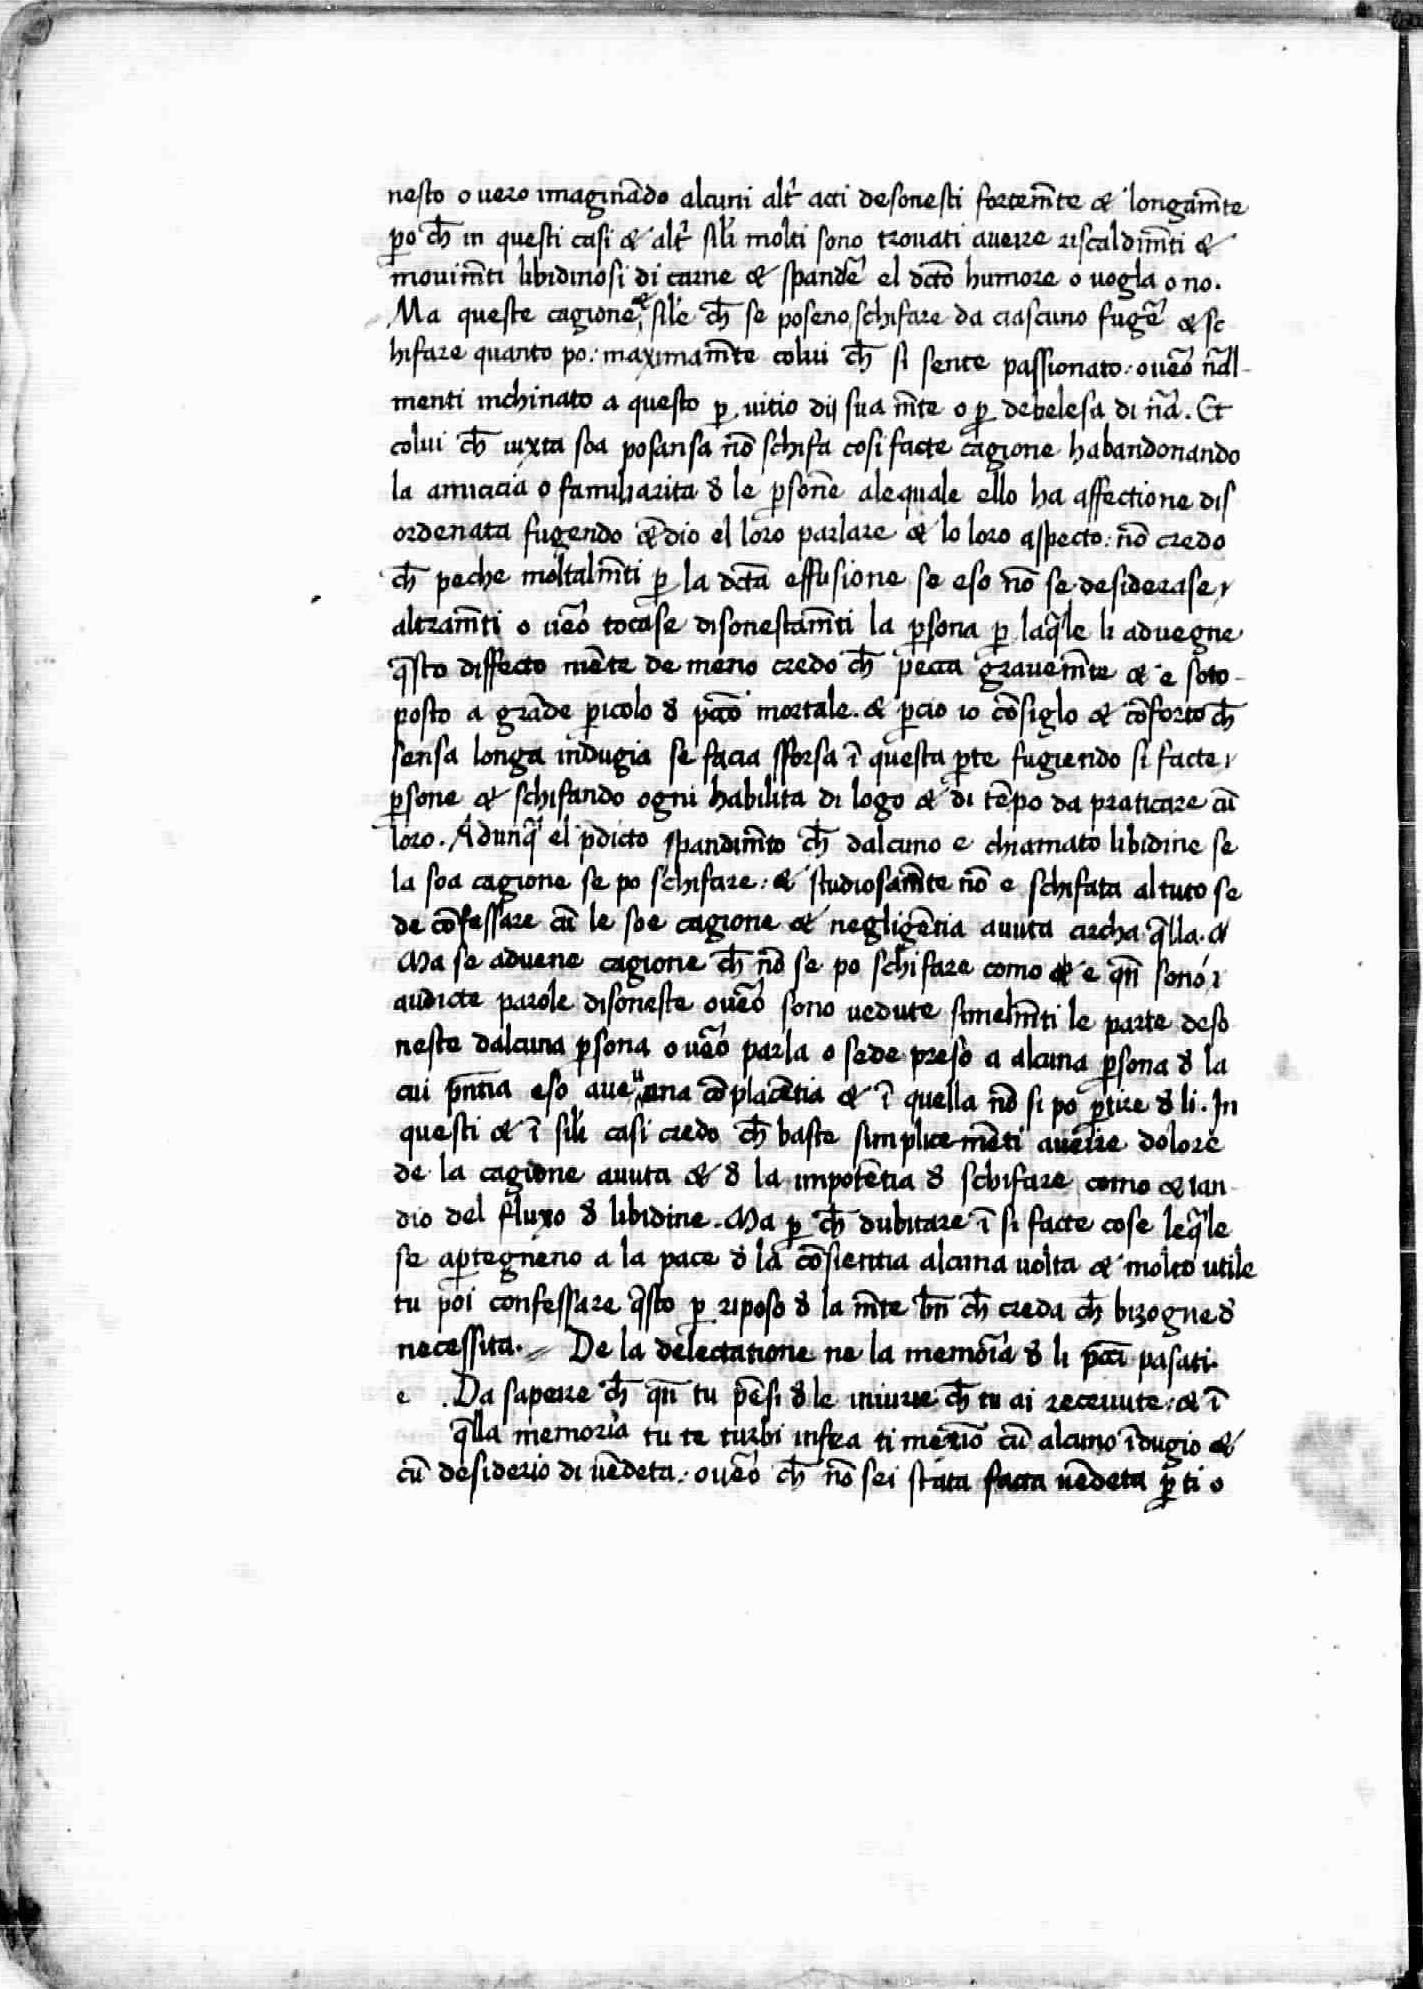 nesto o uero imaginādo alcuni altͥ acti desonesti fortem̄te & longam̄te
ꝑo ch̄ in questi casi & altͥ sili molti sono trouati aueire riscaldim̄ti &
mouim̄ti libidinosi di carne & spandē el dcto humore o uogla o no.
Ma queste cagione & sile ch̄ se poseno schifare da ciascuno fugē & sc
hifare quanto po: maximam̄te colui ch̄ si sente passionato: oueō nāl-
menti inchinato a questo ꝑ uitio dij sua m̄te o ꝑ debelesa di nā. Et
colui ch̄ iuxta soa posansa nō schifa cosi facte cagione habandonando
la amicicia o familiarita đ le ꝑsone alequale ello ha affectione dis
ordenata fugendo &̄dio el loro parlare & lo loro aspecto: nō credo
ch̄ peche moltalm̄ti ꝑ la dcta effusione se eso nō se desiderase,
altram̄ti o ueō tocase disonestam̄ti la ꝑsona ꝑ laq̄le li aduegne
q̄sto diffecto niēte de meno credo ch̄ pecca grauem̄te & e soto-
posto a grāde ꝑicolo đ pcc̄o mortale. & ꝑcio io cōsiglo & cōforto ch̄
sensa longa indugia se facia sforsa ī questa ꝑte fugiendo si facte
ꝑsone & schifando ogni habilita di logo & di tēpo da praticare cū
loro. Adunq̄ el p̄dicto spandim̄to ch̄ dalcuno e chiamato libidine se
la soa cagione se po schifare: & studiosam̄te nō e schifata al tuto se
de cōfessare cū le soe cagione & negligētia auuta circha q̄lla. &
Ma se aduene cagione ch̄ nō se po schifare como & e qn̄ sono
audicte parole disoneste oueō sono uedute simelm̄ti le parte deso
neste dalcuna ꝑsona o ueō parla o sede preso a alcuna ꝑsona đ la
cui p̄ntia eso aue una cōplacētia & ī quella nō si po ꝑtire đ li. In
questi & ī sili casi credo ch̄ baste simplicemēti aueire dolore
de la cagione auuta & đ la impotētia đ schifare como & ian
dio del fluxo đ libidine. Ma ꝑ ch̄ dubitare ī si facte cose leq̄le
se aꝑtegneno a la pace đ la cōsientia alcuna uolta & molto utile
tu poi confessare q̄sto ꝑ riposo đ la m̄te bn̄ ch̄ creda ch̄ bizogne đ
necessita. De la delectatione ne la memoria đ li pcc̄i pasati.
e .Da sapeire ch̄ qn̄ tu pēsi đ le iniurie ch̄ tu ai receuute: & ī
q̄lla memoria tu te turbi infra ti međ̄io cū alcuno īdugio &
cū desiderio di uēdeta: oueō ch̄ nō sei stata facta uēdeta ꝑ ti o